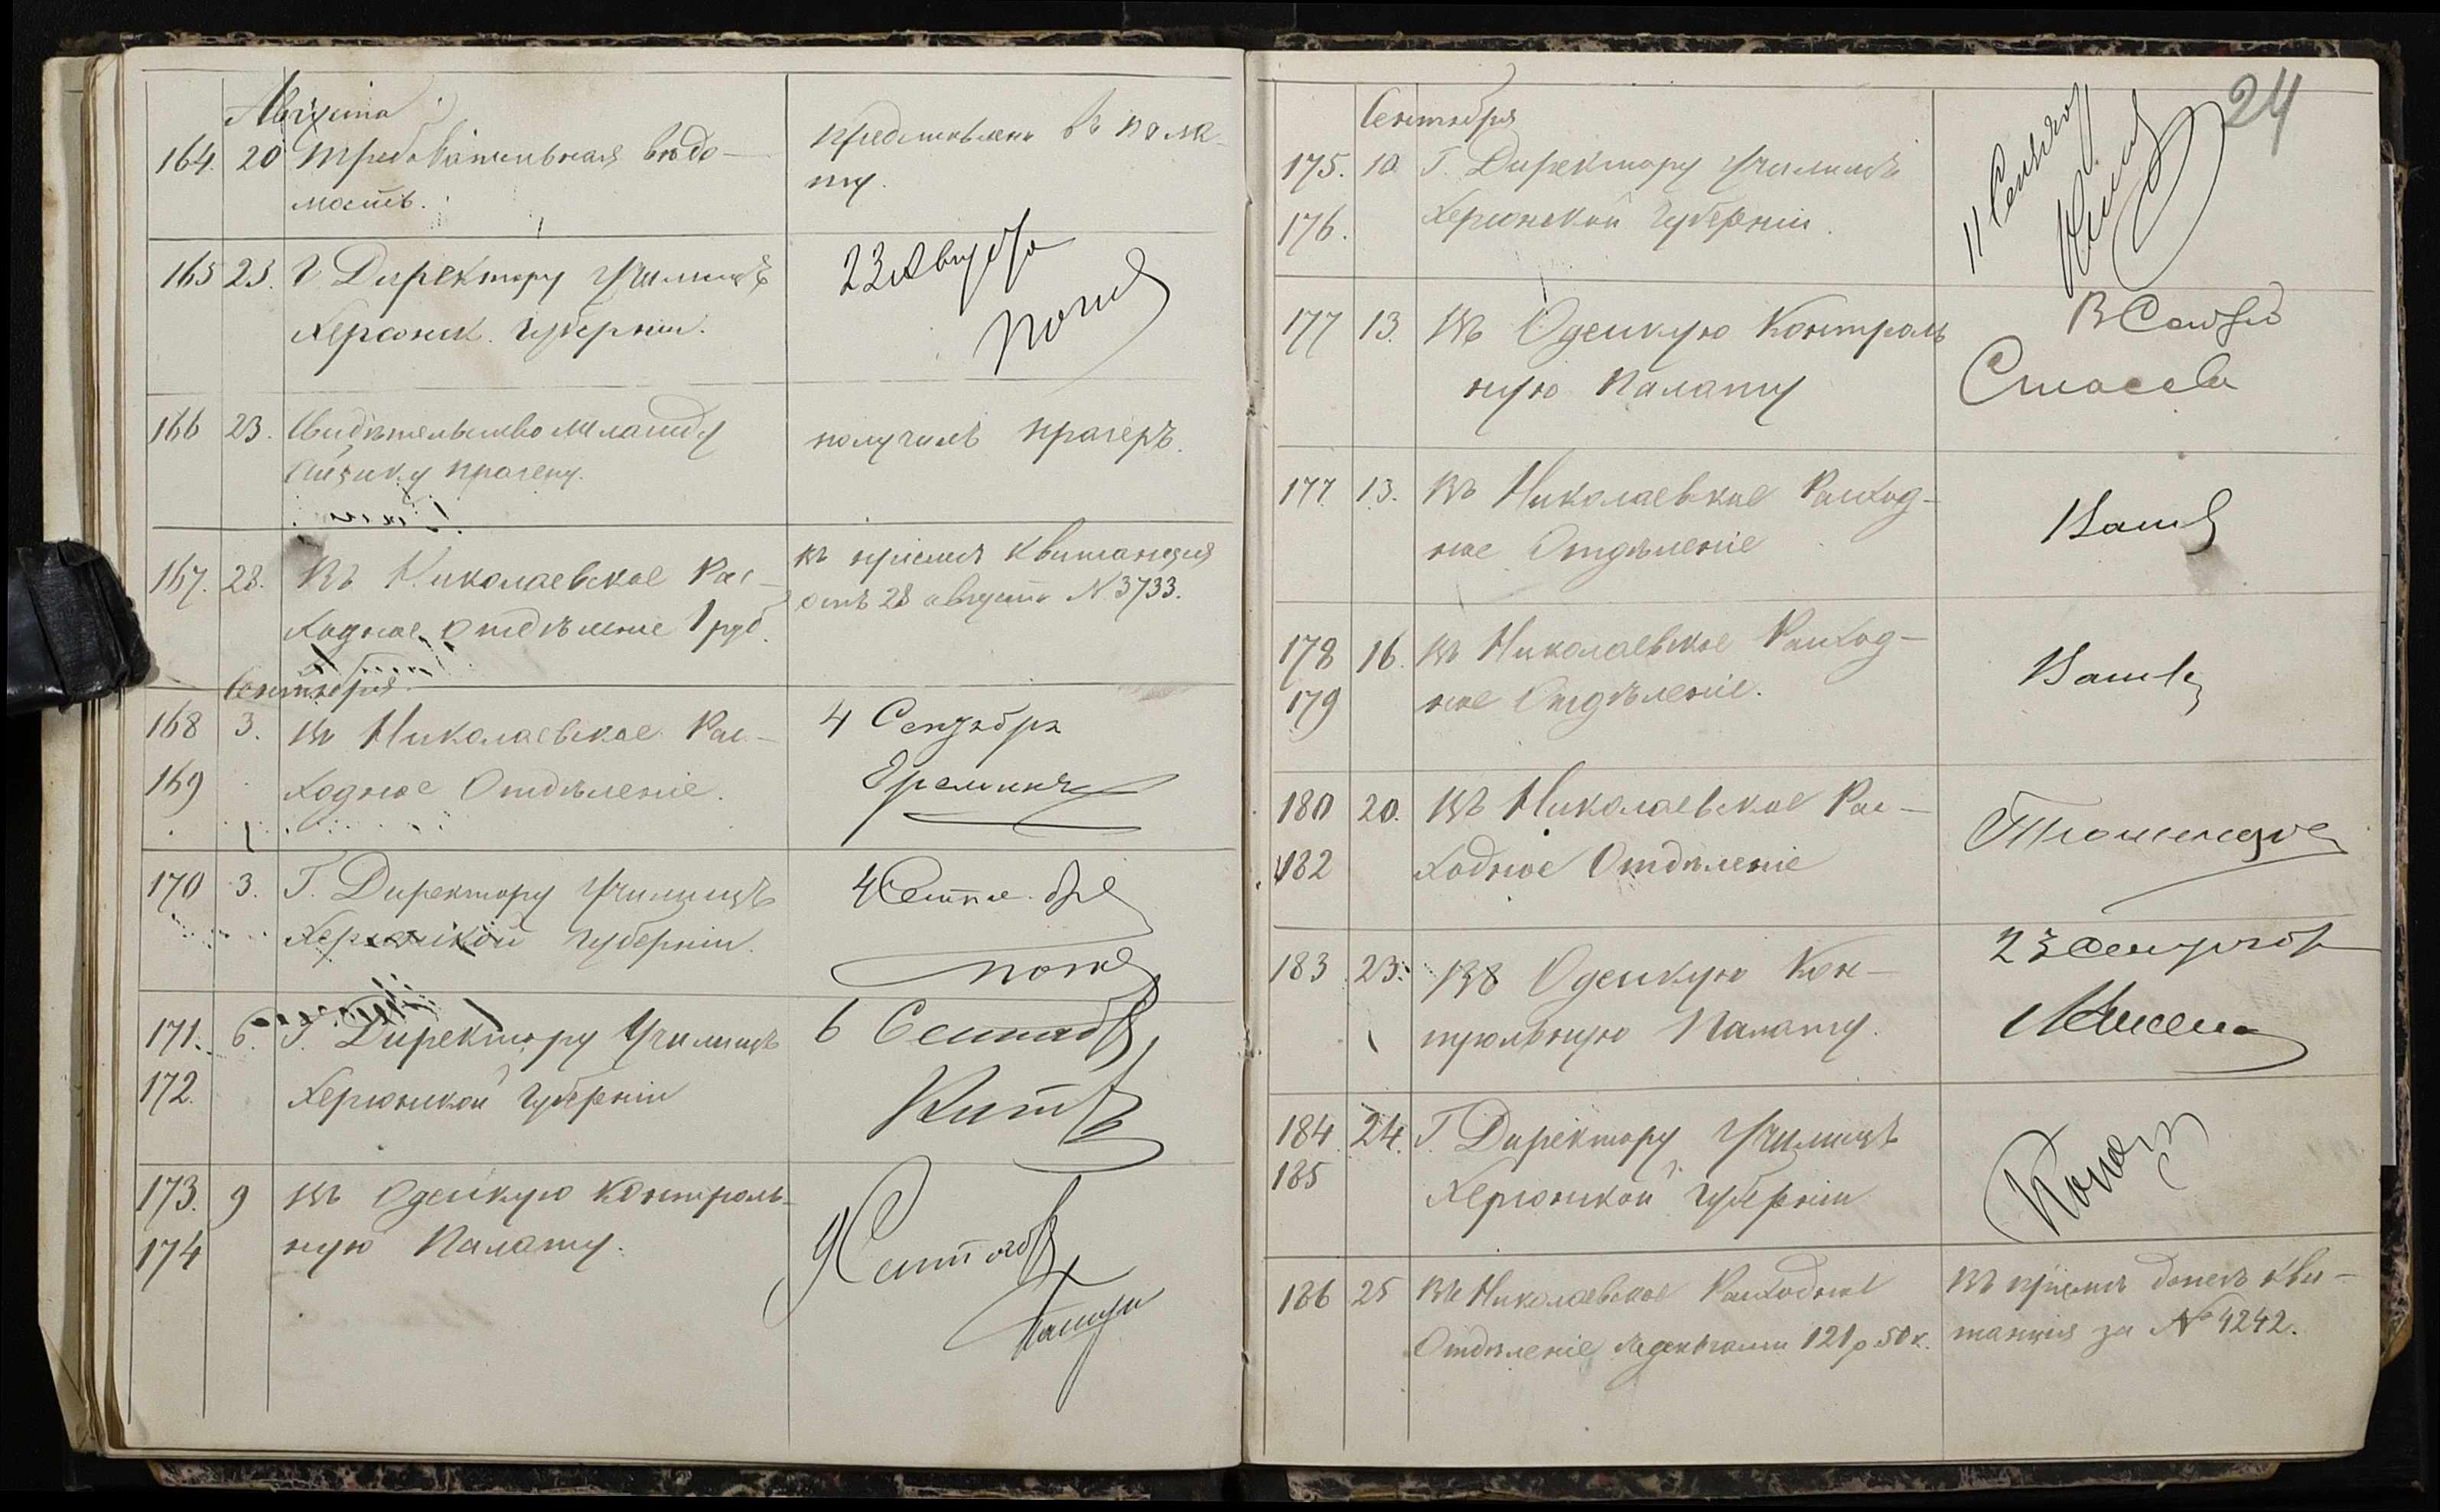 Августа
164. 20 Требовательная вѣдо-
мость.
представлена въ пала-
ту.
165 23. Г Директору Училищъ
Херсонск. Губерніи.
23 Августа
166 23. Свидѣтельство Меламду
Айзику Прагеру.
получилъ Прагеръ.
167. 28. Въ Николаевское Рас-
ходное Отдѣленіе 1 руб.
въ пріемѣ квитанція
отъ 28 августа N 3733.
Сентября
168 3. Въ Николаевское Рас-
169 ходное Отдѣленіе.
4 Сентября
170 3. Г. Директору Училищъ
Херсонской Губерніи.
4 Сентября
171. 6. Г. Директору Училищъ
172. Херсонской Губерніи
6 Сентября
173. 9 Въ Одесскую Контроль-
174 ную Палату.
9 Сентября
24
Сентября
175. 10 Г. Директору Училищъ
176. Херсонской Губерніи.
11 Сентября
177 13. Въ Одесскую Контроль
ную Палату
177 13. Въ Николаевское Расход-
ное Отдѣленіе
178 16. Въ Николаевское Расход-
179 ное Отдѣленіе.
180 20. Въ Николаевское Рас-
182 ходное Отдѣленіе
183 23. Въ Одесскую Кон-
трольную Палату.
23 Сентября
184 24. Г. Директору Училищъ
185 Херсонской Губерніи
186 25 Въ Николаевское Расходное
Отдѣленіе 121 р 50 к.
Въ пріемѣ денегъ кви-
танція за № 4242.